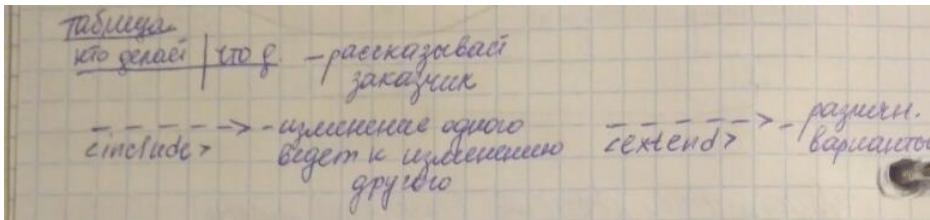 Таблица
кто делает | что д. - рассказывает
заказчик
- - - - - -> - изменение одного
<include> ведет к изменению
другого
- - - - - -> - различн.
<extend> варианты